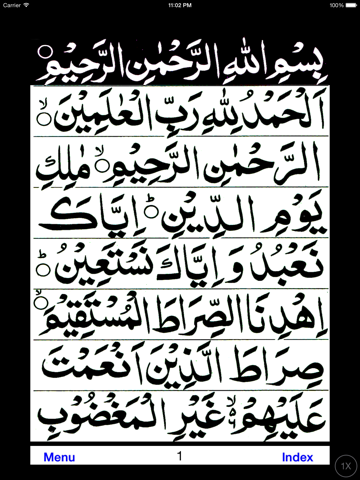 Carrier 11:02 PM 100%
بِسْمِ اللهِ الرَّحْمٰنِ الرَّحِيْمِ ○
اَلْحَمْدُ لِلّٰهِ رَبِّ الْعٰلَمِيْنَ ○ۙ
الرَّحْمٰنِ الرَّحِيْمِ ○ۙ مٰلِكِ
يَوْمِ الدِّيْنِ ○ؕ اِيَّاكَ
نَعْبُدُ وَ اِيَّاكَ نَسْتَعِيْنُ ○ؕ
اِهْدِنَا الصِّرَاطَ الْمُسْتَقِيْمَ ○ۙ
صِرَاطَ الَّذِيْنَ اَنْعَمْتَ
عَلَيْهِمْ ○ۙ۬ غَيْرِ الْمَغْضُوْبِ
Menu 1 Index
1X